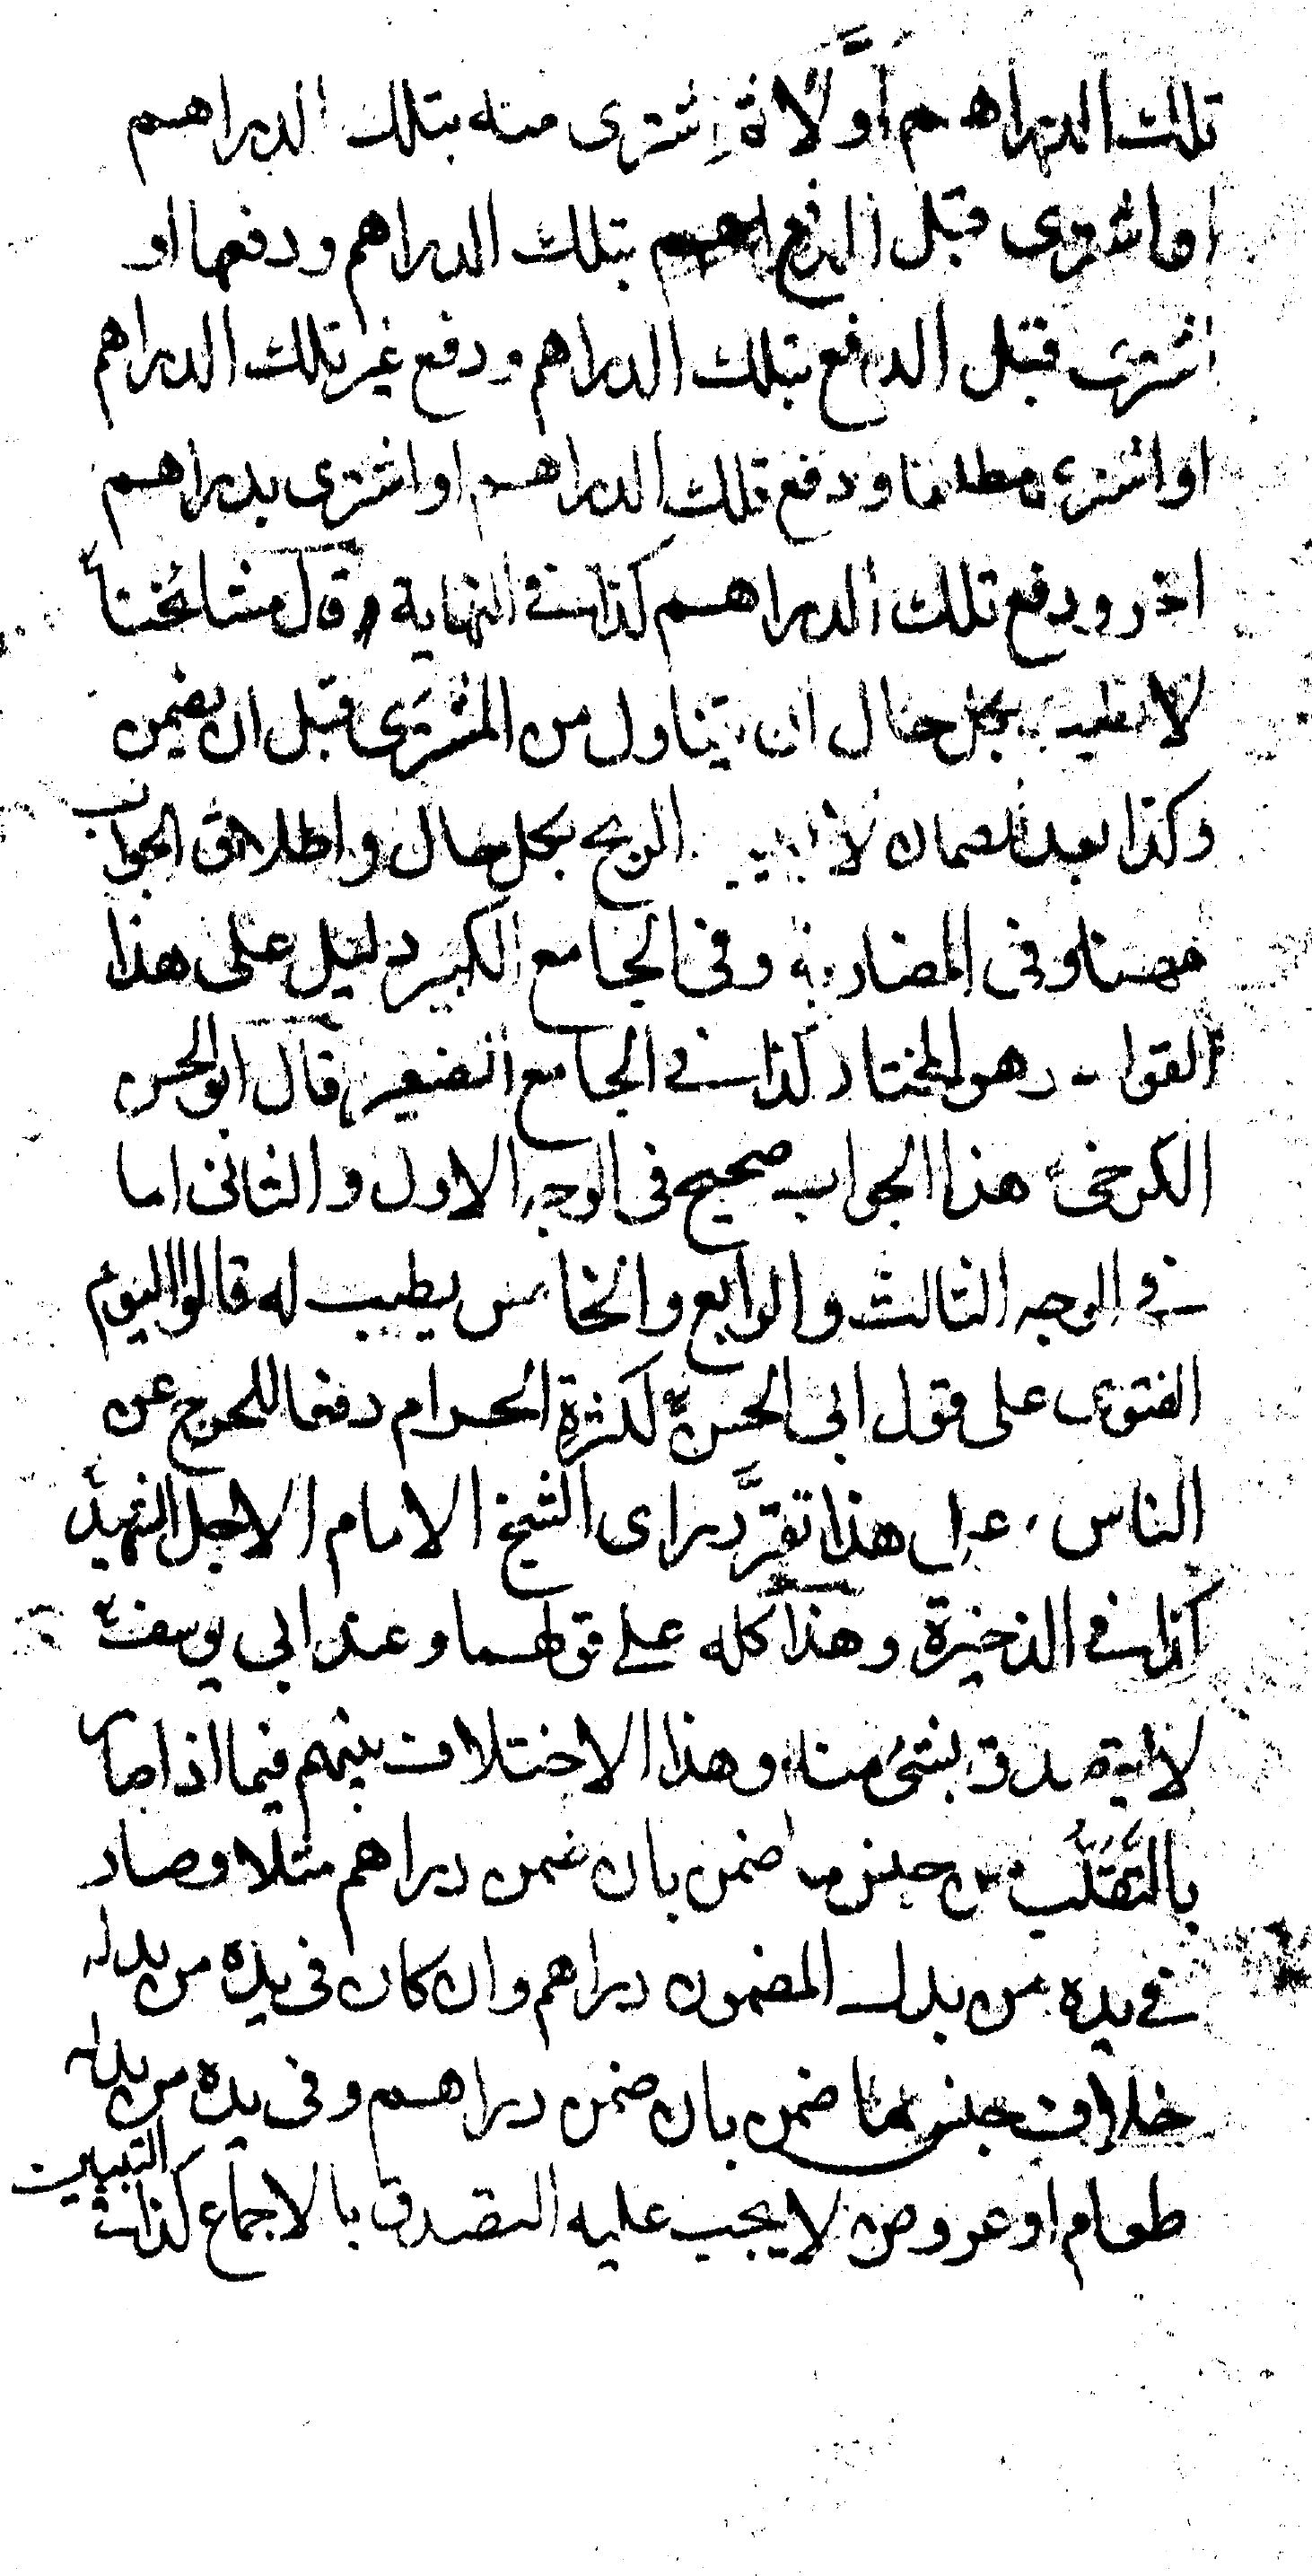 تلك الدراهم أولا ثم اشترى منه بتلك الدراهم
او اشترى قبل الدفع بتلك الدراهم ودفعها او
اشترى قبل الدفع بتلك الدراهم ودفع غير تلك الدراهم
او اشترى مطلقا ودفع تلك الدراهم او اشترى بدراهم
اخر ودفع تلك الدراهم كذا في النهاية وقال مشائخنا
لا يطيب بكل حال ان يتناول من المشترى قبل ان يضمن
وكذا بعد الضمان لا الربح بكل حال واطلاق الجواب
ههنا وفى المضاربة وفى الجامع الكبير دليل على هذا
القول وهو المختار كذا في الجامع الصغير قال ابو الحسن
الكرخى هذا الجواب صحيح فى الوجه الاول والثانى اما
في الوجه الثالث والرابع والخامس يطيب له قالوا اليوم
الفتوى على قول ابى الحسن لكثرة الحرام دفعا للحرج عن
الناس وعلى هذا تقرّر راى الشيخ الامام الاجل الشهيد
كذا في الذخيرة وهذا كله على قولهما وعند ابي يوسف
لا يتصدق بشئ منه وهذا الاختلاف بينهم فيما اذا صار
بالتقلب من جنس ما ضمن بان ضمن دراهم مثلا وصار
في يده من بدل المضمون دراهم وان كان فى يده من بدله
خلاف جنس ما ضمن بان ضمن دراهم وفى يده من بدله
طعام او عروض لا يجب عليه التصدق بالاجماع كذا في التبيين